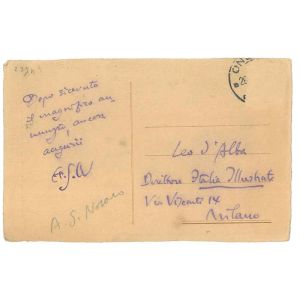 Dopo ricevuto
il magnifico an
nunzio, ancora
auguri
A. G. Novaro
Leo d'Alba
Direttore Italia Illustrata
Via Visconti 14
Milano